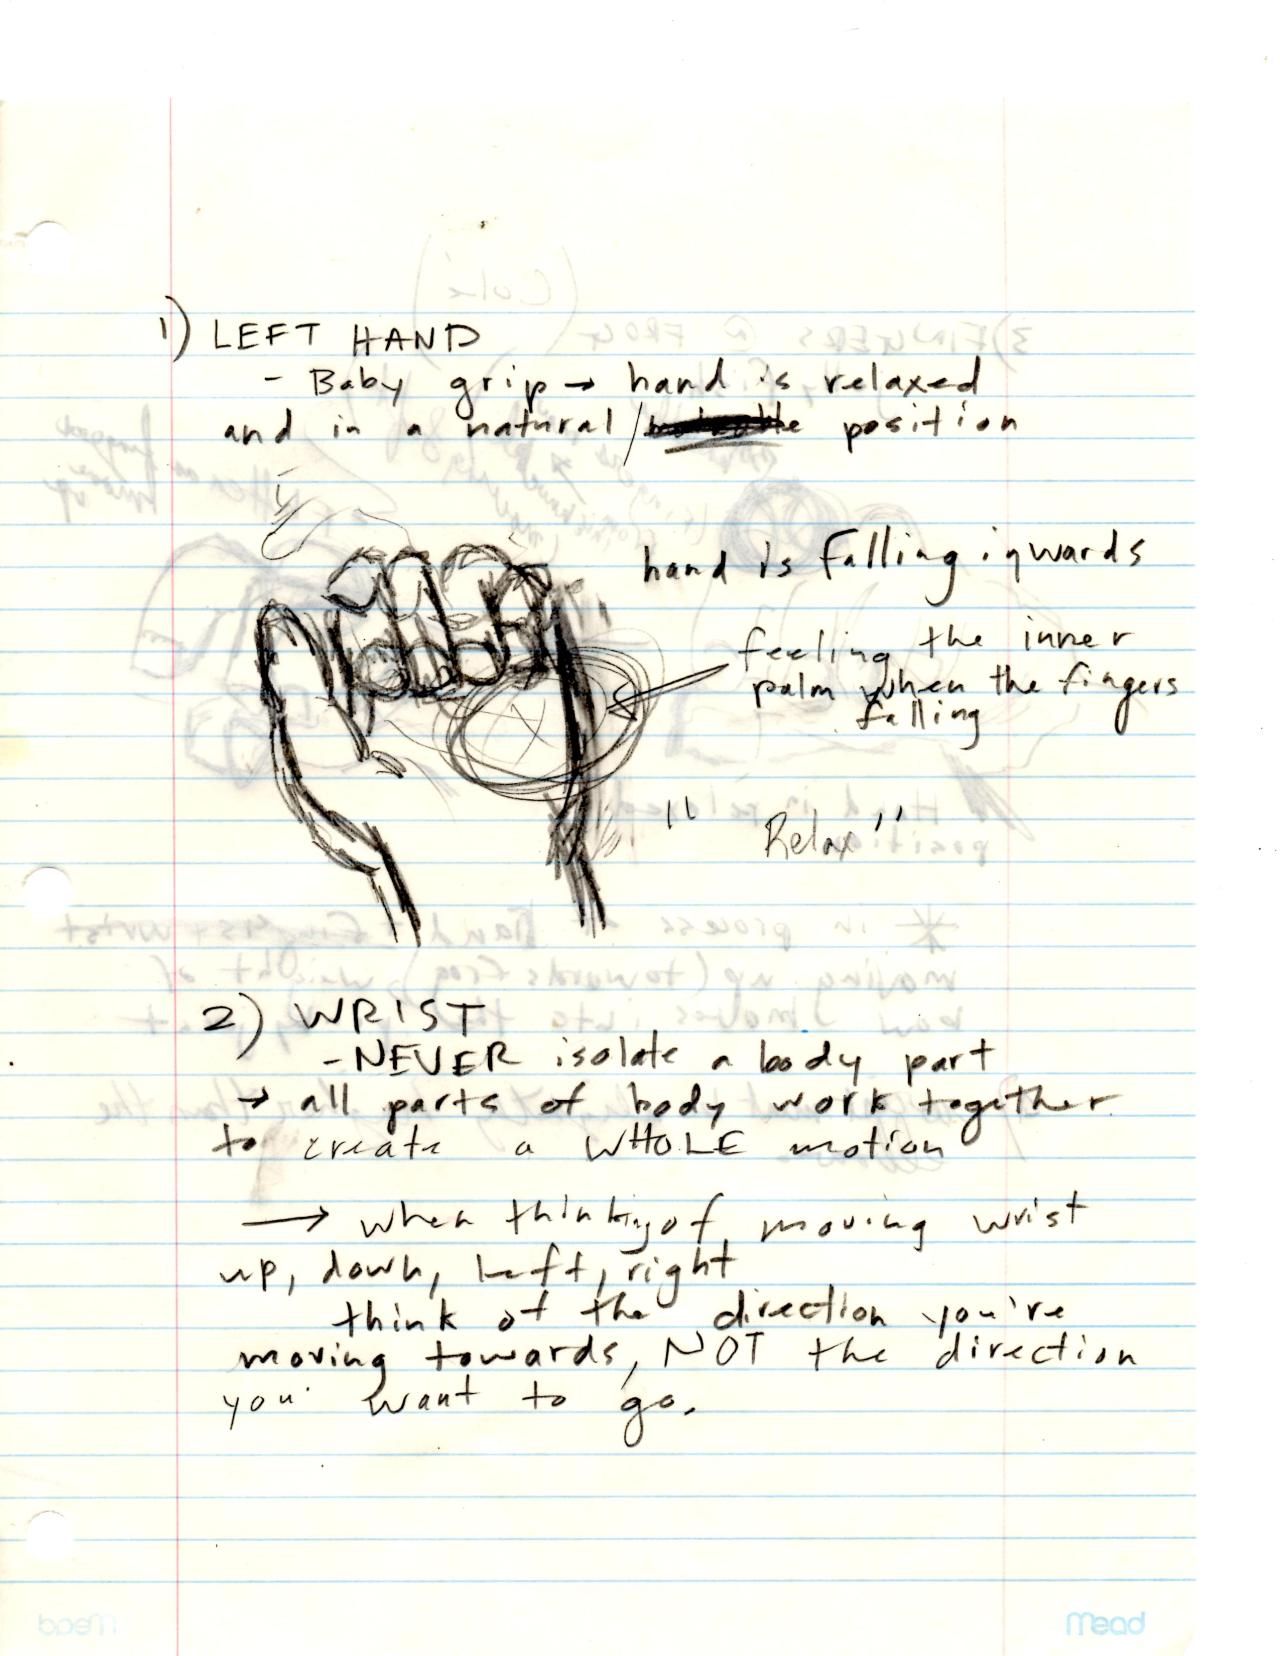 1) LEFT HAND
- Baby grip → hand is relaxed
and in a natural / position
hand is falling inwards
feeling the inner
palm when the fingers
falling
" Relax"
2) WRIST
- NEVER isolate a body part
→ all parts of body work together
to create a WHOLE motion
→ when thinking of moving wrist
up, down, left, right
think of the direction you're
moving towards, NOT the direction
you want to go.
Mead